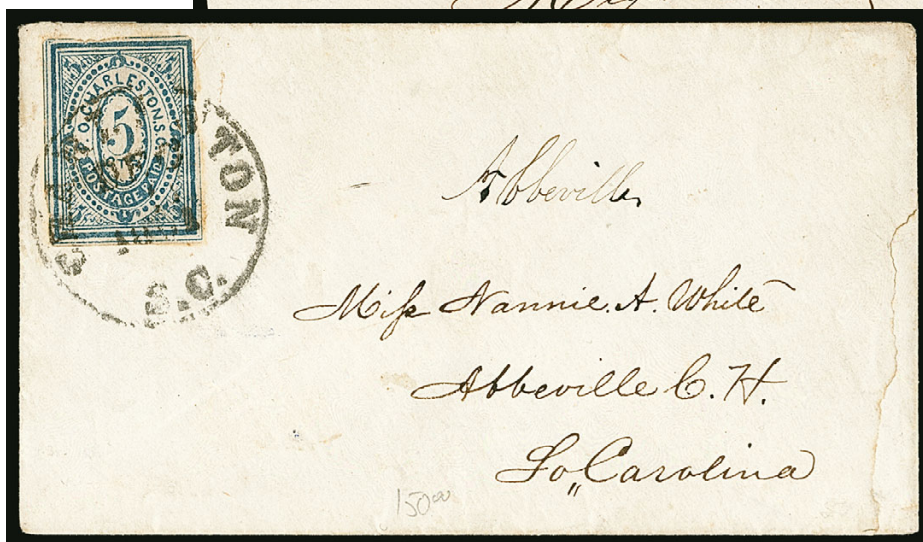 P. O. CHARLESTON. S. C.
5
POSTAGE PAID
CHARLESTON
S.C.
Abbeville
Miss Nannie. A. White
Abbeville C. H.
So,, Carolina
150 00